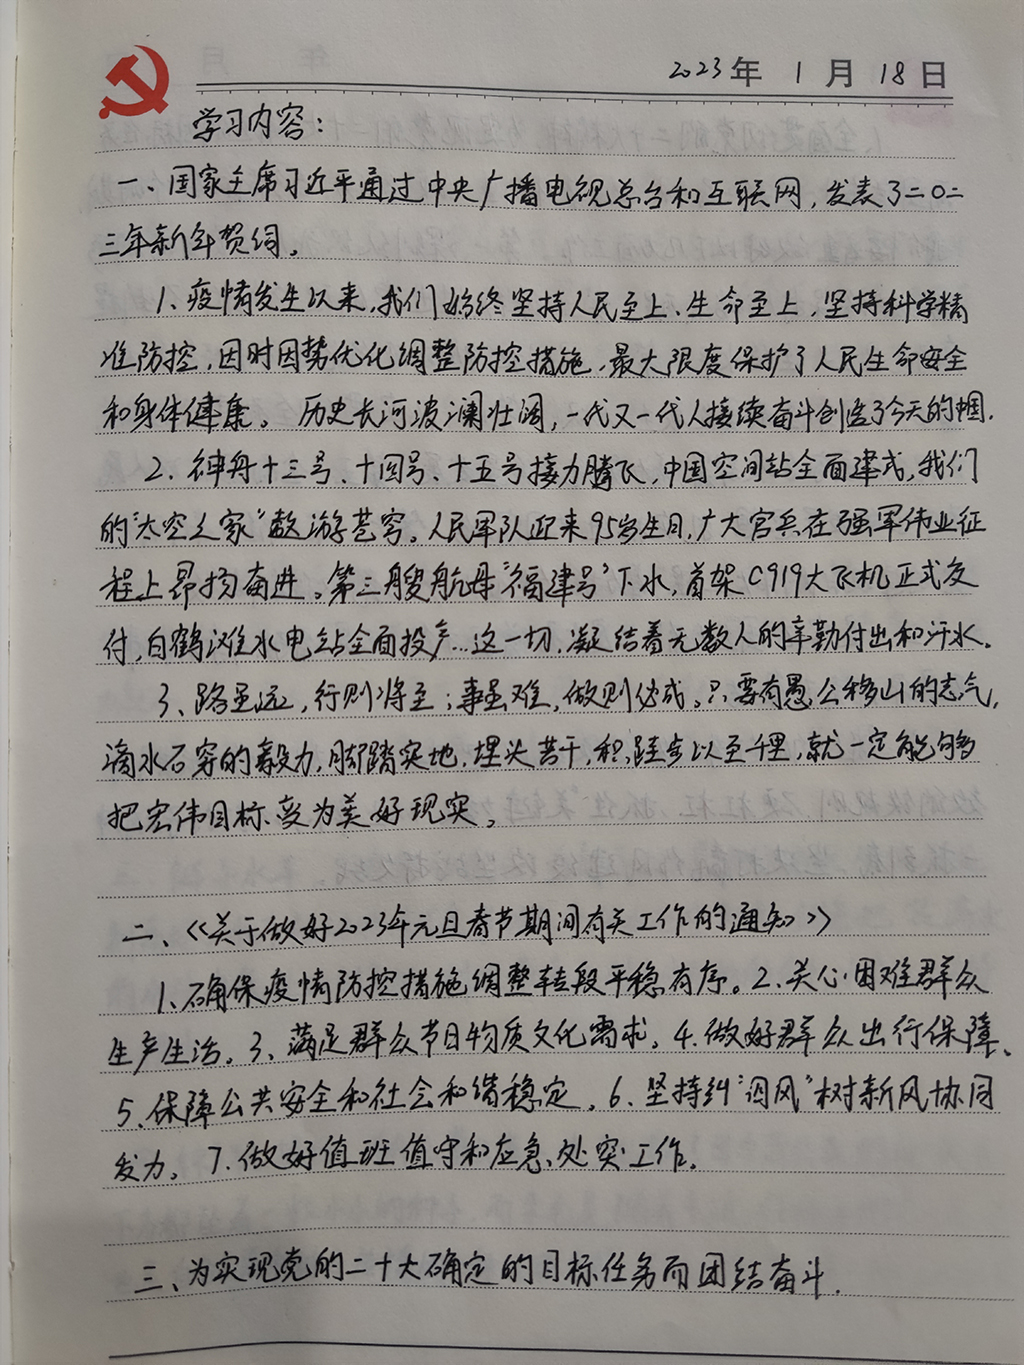 2023年 1月 18日
学习内容：
一、国家主席习近平通过中央广播电视总台和互联网，发表了二〇二
三年新年贺词。
1、疫情发生以来，我们始终坚持人民至上、生命至上，坚持科学精
准防控，因时因势优化调整防控措施，最大限度保护了人民生命安全
和身体健康。历史长河波澜壮阔，一代又一代人接续奋斗创造了今天的中国.
2、神舟十三号、十四号、十五号接力腾飞，中国空间站全面建成，我们
的“太空之家”遨游苍穹。人民军队迎来95岁生日，广大官兵在强军伟业征
程上昂扬奋进。第三艘航母“福建号”下水，首架C919大飞机正式交
付，白鹤滩水电站全面投产…这一切，凝结着无数人的辛勤付出和汗水。
3、路虽远，行则将至；事虽难，做则必成。只要有愚公移山的志气，
滴水石穿的毅力，脚踏实地，埋头苦干，积跬步以至千里，就一定能够
把宏伟目标变为美好现实。
二、《关于做好2023年元旦春节期间有关工作的通知》
1、确保疫情防控措施调整转段平稳有序。2、关心困难群众
生产生活。3、满足群众节日物质文化需求。4.做好群众出行保障、
5、保障公共安全和社会和谐稳定。6、坚持纠“四风”树新风协同
发力。7.做好值班值守和应急处突工作。
三、为实现党的二十大确定的目标任务而团结奋斗.